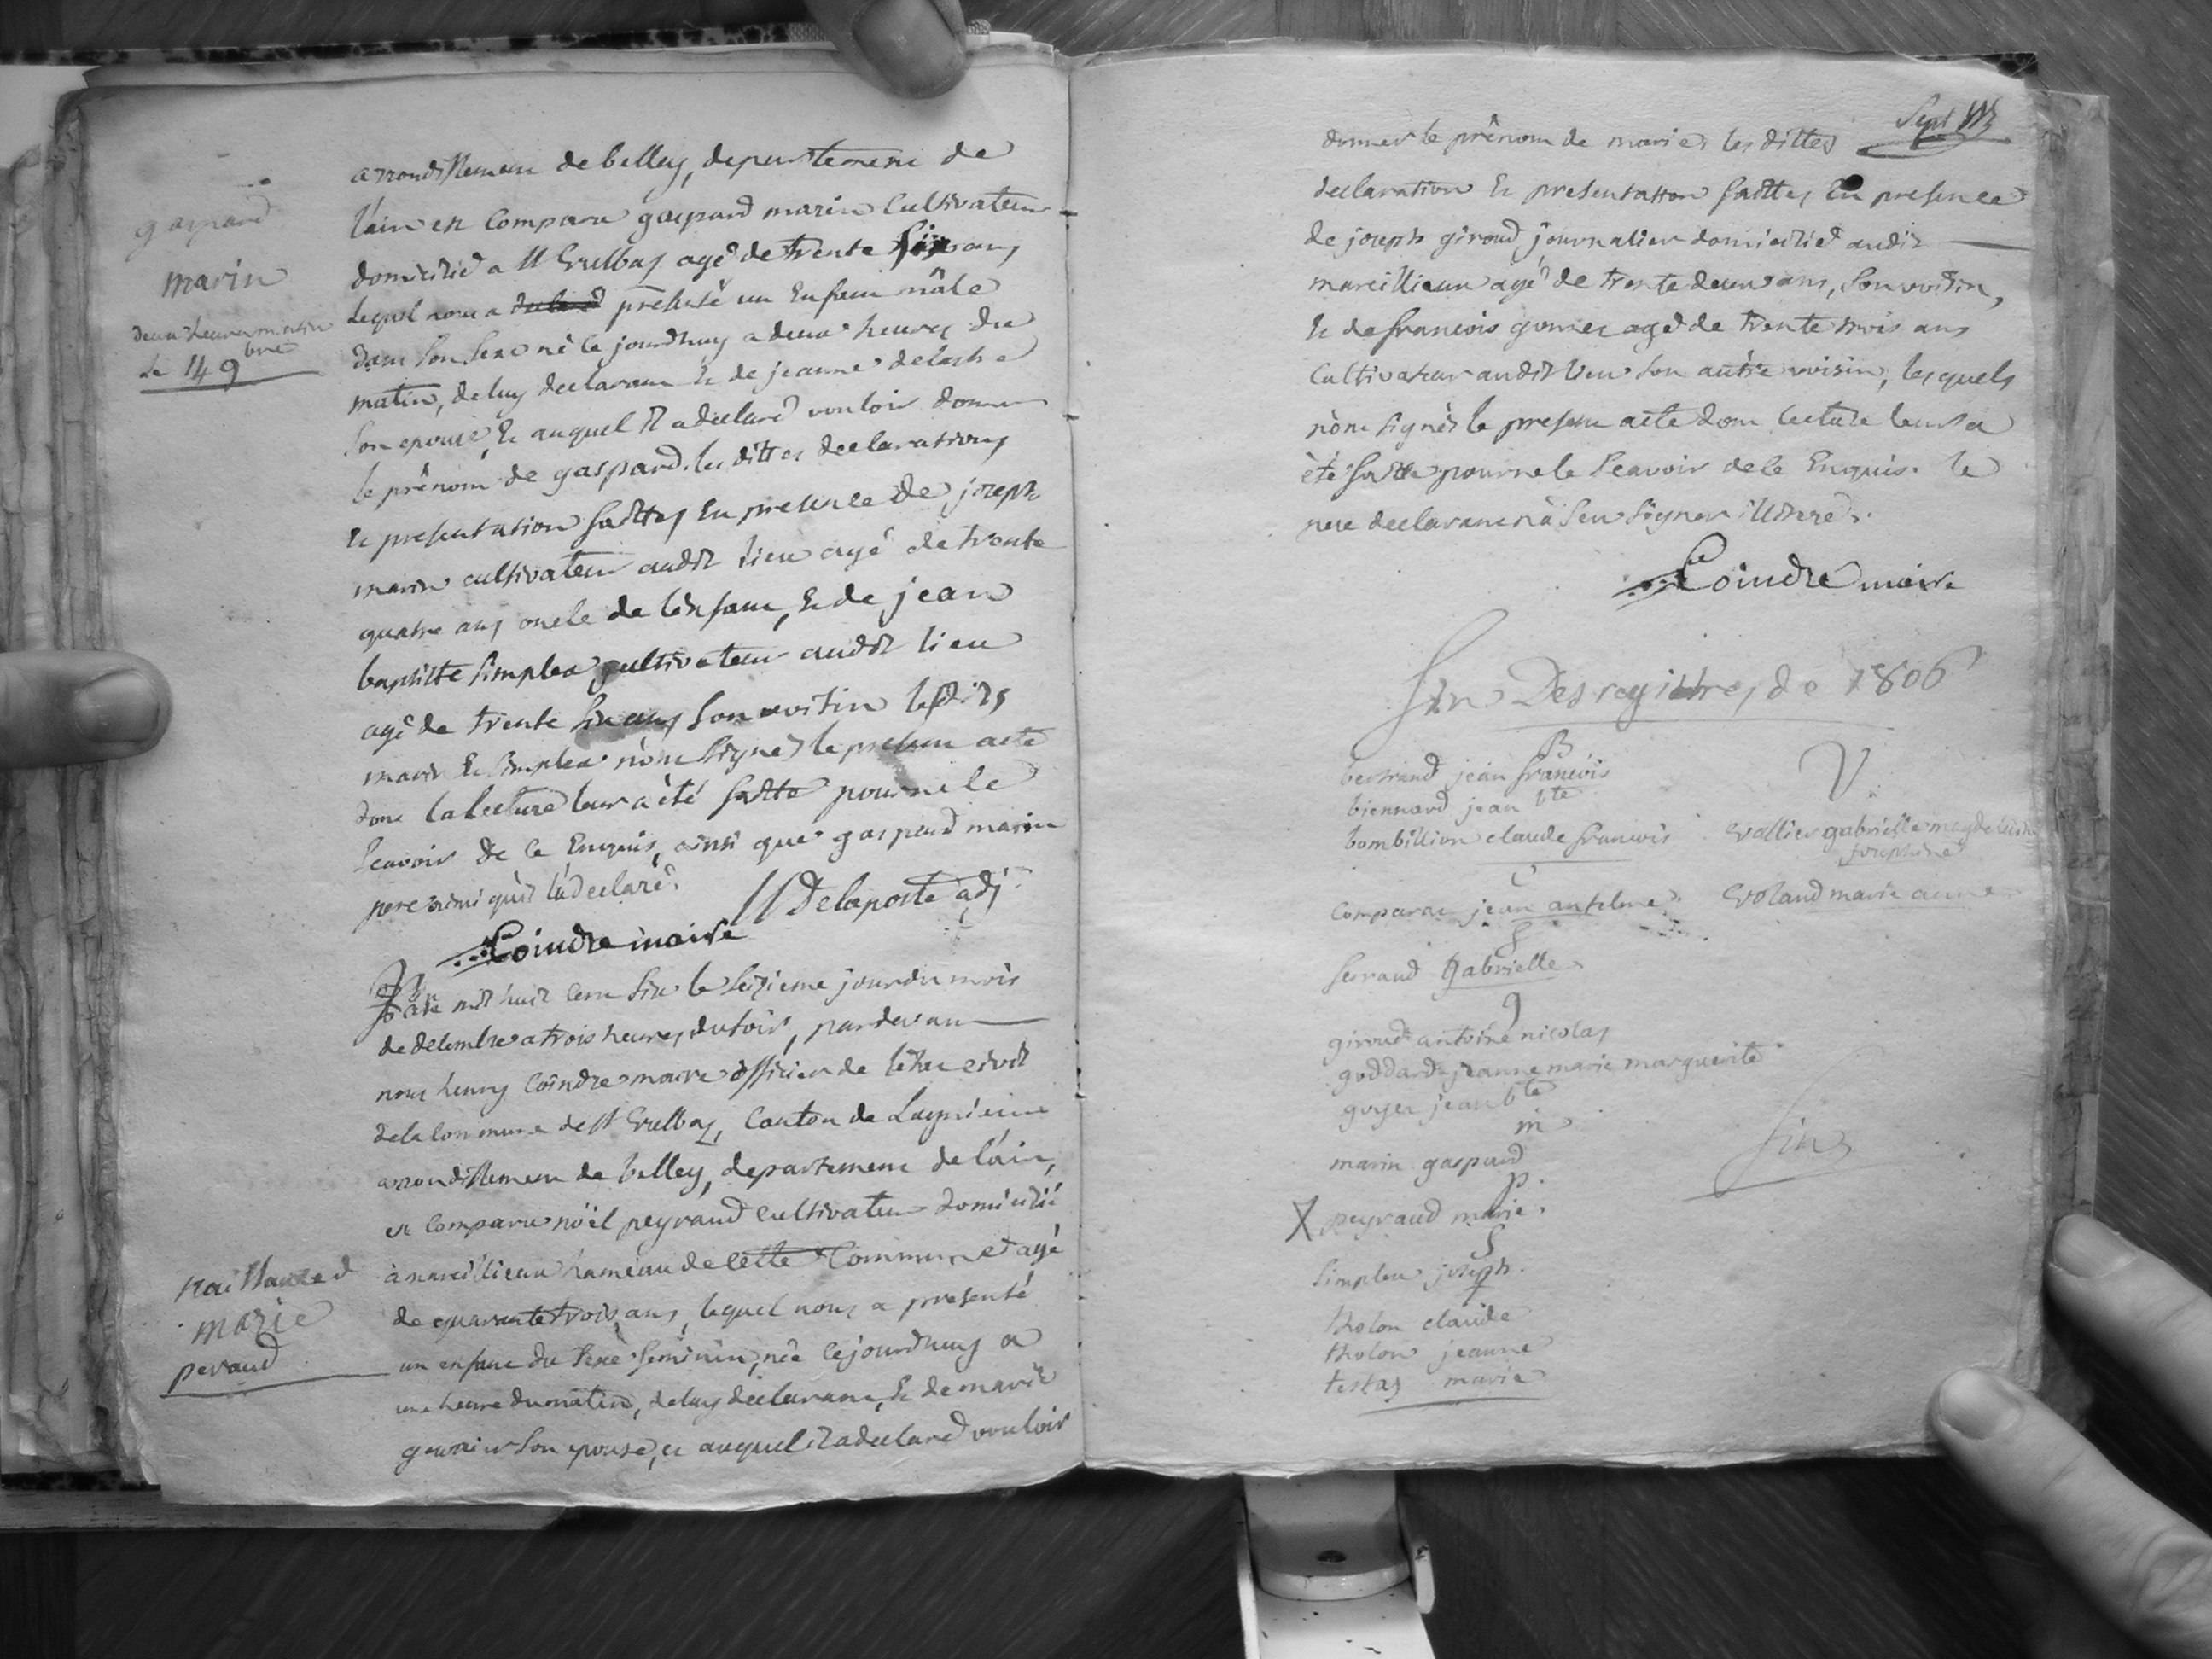 gaspard
marin
deux heures matin
Le 14 9bre
arrondissement de belley, departement de
l'ain est Comparu gaspard marin Cultivateur
domicilié a St Grulbas agé de trente six ans
Lequel nous a presenté un Enfant mâle
dans son sexe né le jourdhuy a deux heures du
matin, de luy declarant Et de jeanne
son epouse, Et auquel il a declaré vouloir donner
le prénom de gaspard. les dittes declarations
Et presentation faittes En presence de joseph
marin cultivateur audit lieu agé de trente
quatre ans oncle de l'enfant, Et de jean
baptiste simplex cultivateur audit lieu
agé de trente six ans son voisin lesdits
marin Et simplex n'ont signés le present acte
dont la lecture leur a été faitte pour ne le
scavoir de ce Enquis, ainsi que gaspard marin
pere ainsi qu'il l'a declaré.
Delaposte adj
Coindre maire
naissance d
marie
peraud
L'an mil huit Cent six le seizieme jour du mois
de decembre a trois heures du soir, pardevant
nous henry Coindre maire officier de l'état civil
de la Commune de St Grulbas, Canton de Lagnieu
arrondissement de belley, departement de l'ain,
est Comparu noël peyraud cultivateur domicilié
à marcillieux hameau de cette Commune et agé
de quarante trois ans, lequel nous a presenté
un enfant du sexe feminin, née cejourdhuy a
une heure du matin, de luy déclarant, Et de marie
son epouse, et auquel il a declaré vouloir
Sept
donner le prénom de marie, les dittes
declaration Et presentation faittes En presence
de joseph giroud journalier domicilié audit
marcillieux agé de trente deux ans, son voisin,
Et de francois goyet agé de trente trois ans
Cultivateur audit lieu son autre voisin, lesquels
n'ont signés le present acte dont lecture leur a
été faitte pour ne le scavoir de ce Enquis. le
pere declarant n'a sceu signer illitéré.
Coindre maire
fin Des registres de 1806
B
bertrand jean francois
biennard jean bte
bombillion claude francois
C
Comparat jean antelme
f
ferraud gabrielle
g
giroud antoine nicolas
goddard jeanne marie marguerite
goyet jean bte
m
marin gaspard
p.
X peyraud marie.
S
Simplex joseph.
T
tholon claude
tholon jeanne
testas marie
V
Vallier gabrielle magdeleine
josephine
Voland marie anne
fin